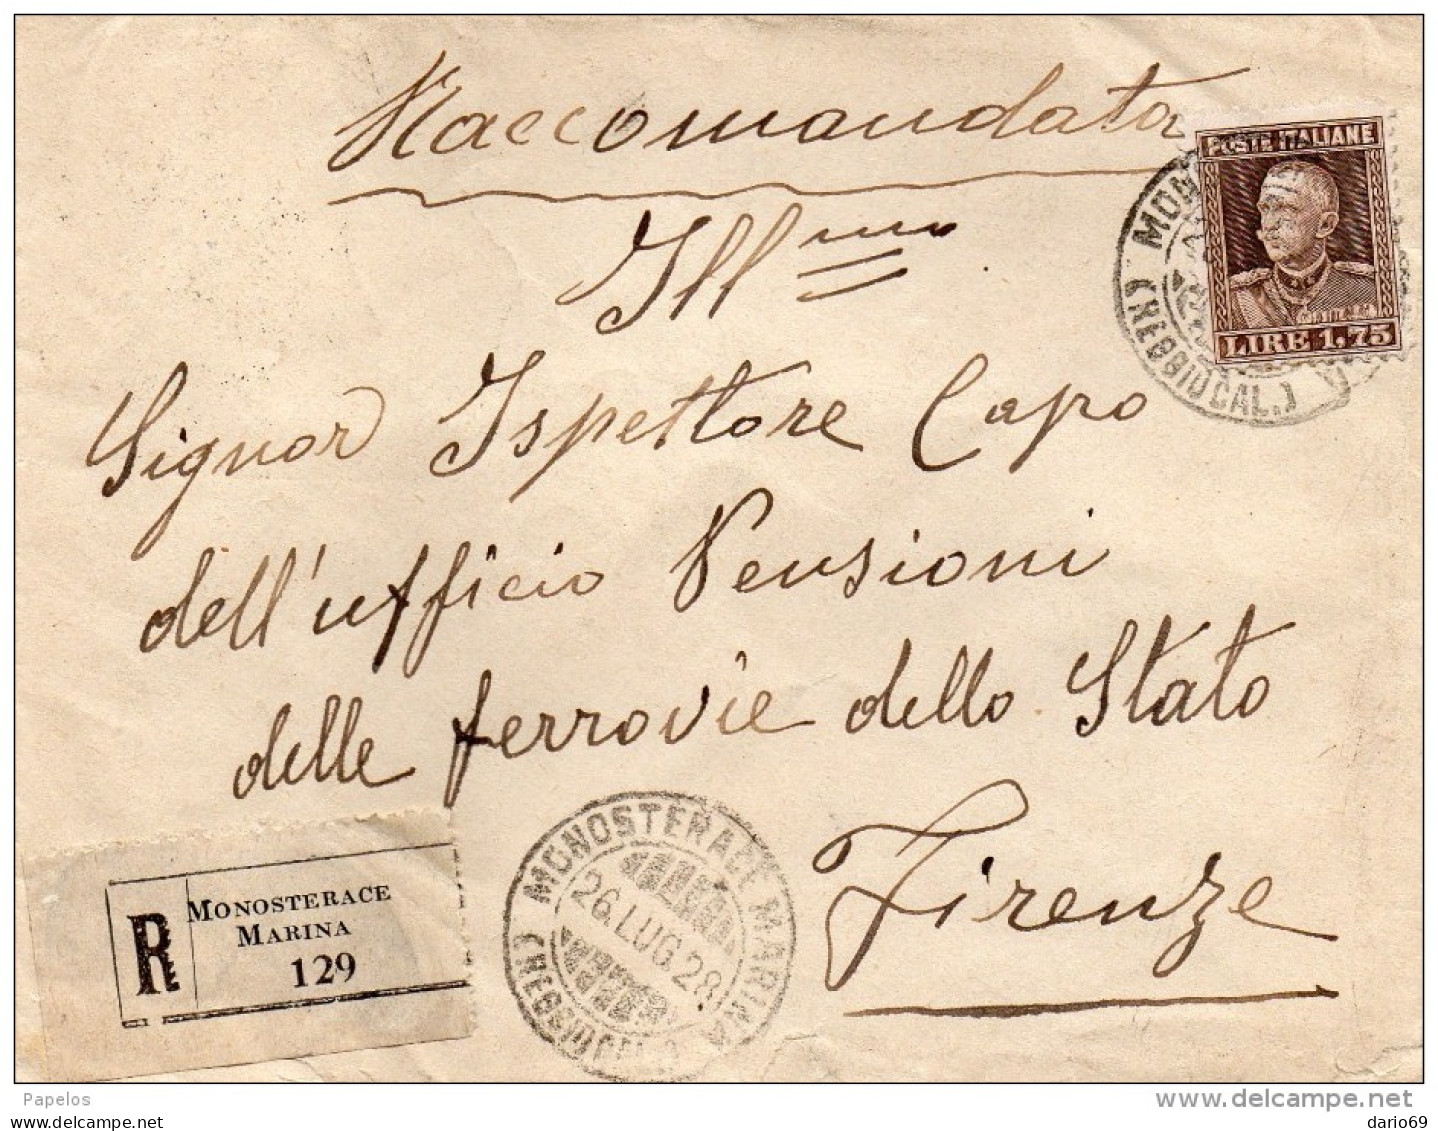 Raccomandata
POSTE ITALIANE
LIRE 1.75
MON
(REGGIO CAL.)
Ill.mo
Signor Ispettore Capo
dell'ufficio Pensioni
delle ferrovie dello Stato
Firenze
R
MONOSTERACE
MARINA
129
MONOSTERACE MARINA
26.LUG.28
(REGGIO CAL.)
Papelos
www.delcampe.net
dario69